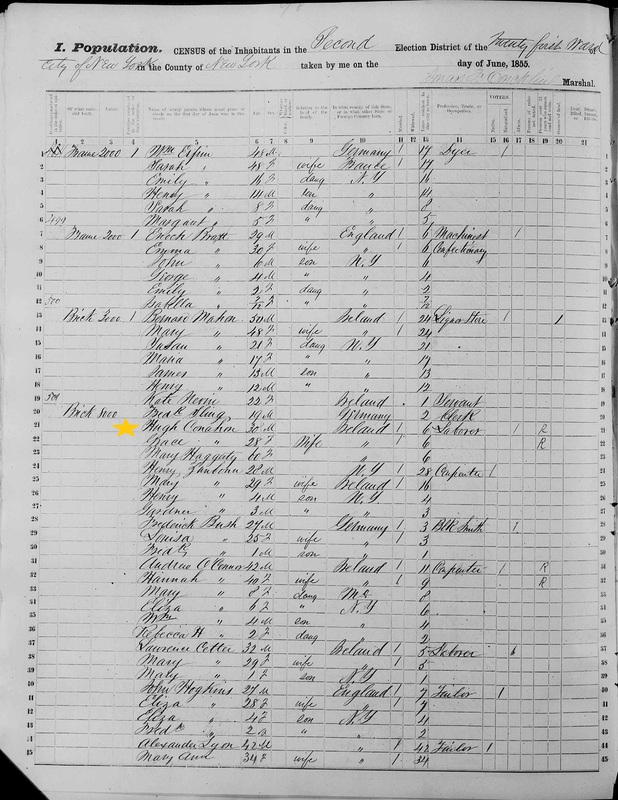 I. Population. CENSUS of the Inhabitants in the Second Election District of the Twenty first Ward
City of New York in the County of New York taken by me on the day of June, 1855.
Marshal.
VOTERS.
1 2 3 4 5 6 7 8 9 10 11 12 13 14 15 16 17 18 19 20 21
1 Frame 2000 1 Wm 48 M Germany 1 17 Dyer 1
2 Sarah " 48 F wife France 1 17
3 Emily " 16 F daug N.Y 16
4 Henry " 14 M son " 14
5 Sarah " 8 F daug " 8
6 499 Margaret " 5 F " " 5
7 Frame 2000 1 Enoch 29 M England 1 6 Machinest 1
8 Emma " 30 F wife " 1 6 Confectionary
9 John " 6 M son N.Y 6
10 George " 4 M " " 4
11 Emily " 2 F daug " 2
12 500 Isabella "
13 Brick 3000 1 Bernard Mahon 50 M Ireland 1 24 Liquor Store 1 1
14 Mary " 48 F wife " 1 24
15 Susan " 21 F daug N.Y 21
16 Maria " 17 F " " 17
17 James " 13 M son " 13
18 Henry " 12 M " " 12
19 501 Kate 22 F Ireland 1 Servant
20 Brick 8000 19 M Germany 2 Clerk
21 Hugh Conahon 30 M Ireland 1 6 Laborer 1 R
22 Grace " 28 F Wife " 1 6 R
23 Mary Haggaty 60 F " 6
24 Henry 28 M N.Y 1 28 Carpenter 1
25 Mary " 29 F wife Ireland 1 16
26 Henry " 4 M son N.Y 4
27 Gardiner " 3 M " " 3
28 Frederick Bush 27 M Germany 1 3 Blk Smith 1
29 Louisa " 25 F wife " 1 3
30 Fredk " 1 M son " 1
31 Andrew O'Connor 42 M Ireland 1 11 Carpenter 1 R
32 Hannah " 40 F wife " 1 9 R
33 Mary " 8 F daug 8
34 Eliza " 6 F " N.Y 6
35 Wm " 4 M son " 4
36 Rebecca H " 2 F daug " 2
37 Lawrence Cotter 32 M Ireland 1 5 Laborer
38 Mary " 29 F wife " 1 5
39 Mary " 1 F son N.Y 1
40 John Hopkins 27 M England 1 7 Tailor 1
41 Eliza " 28 F wife " 1 7
42 Eliza " 4 F son N.Y 4
43 Fredk " 2 " " 2
44 Alexander Lyon 42 M " 1 42 Tailor 1
45 Mary Ann 34 F wife " 1 34